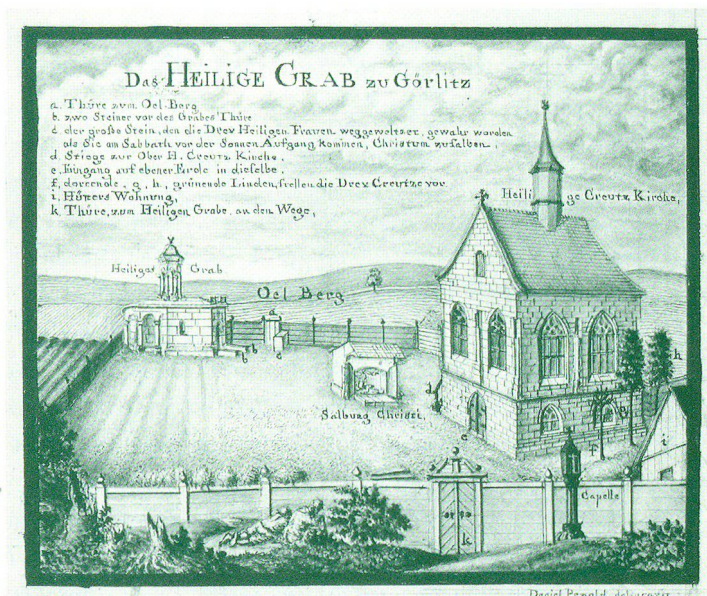 Das HEILIGE GRAB zu Görlitz
a. Thüre zum Oel-Berg
b. zwo Steiner vor des Grabes Thüre
c. der große Stein, den die Drey Heiligen Frauen weggeweltzet, gewahr worden
als Sie am Sabbath vor der Sonnen Aufgang kommen, Christum zusalben.
d. Stiege zur Ober H. Creutz Kirche.
e. Eingang auf ebener Erde in dieselbe.
f. dorrende, g, h, grünende Linden, stellen die Drey Creutze vor.
i. Hütters Wohnung,
k. Thüre, zum Heiligen Grabe, an den Wege,
Heilige Creutz Kirche,
Heiliges Grab
Oel Berg
a
b b
c
h
d
Salbung Christi,
g
e
f
i
Capelle
k
Daniel